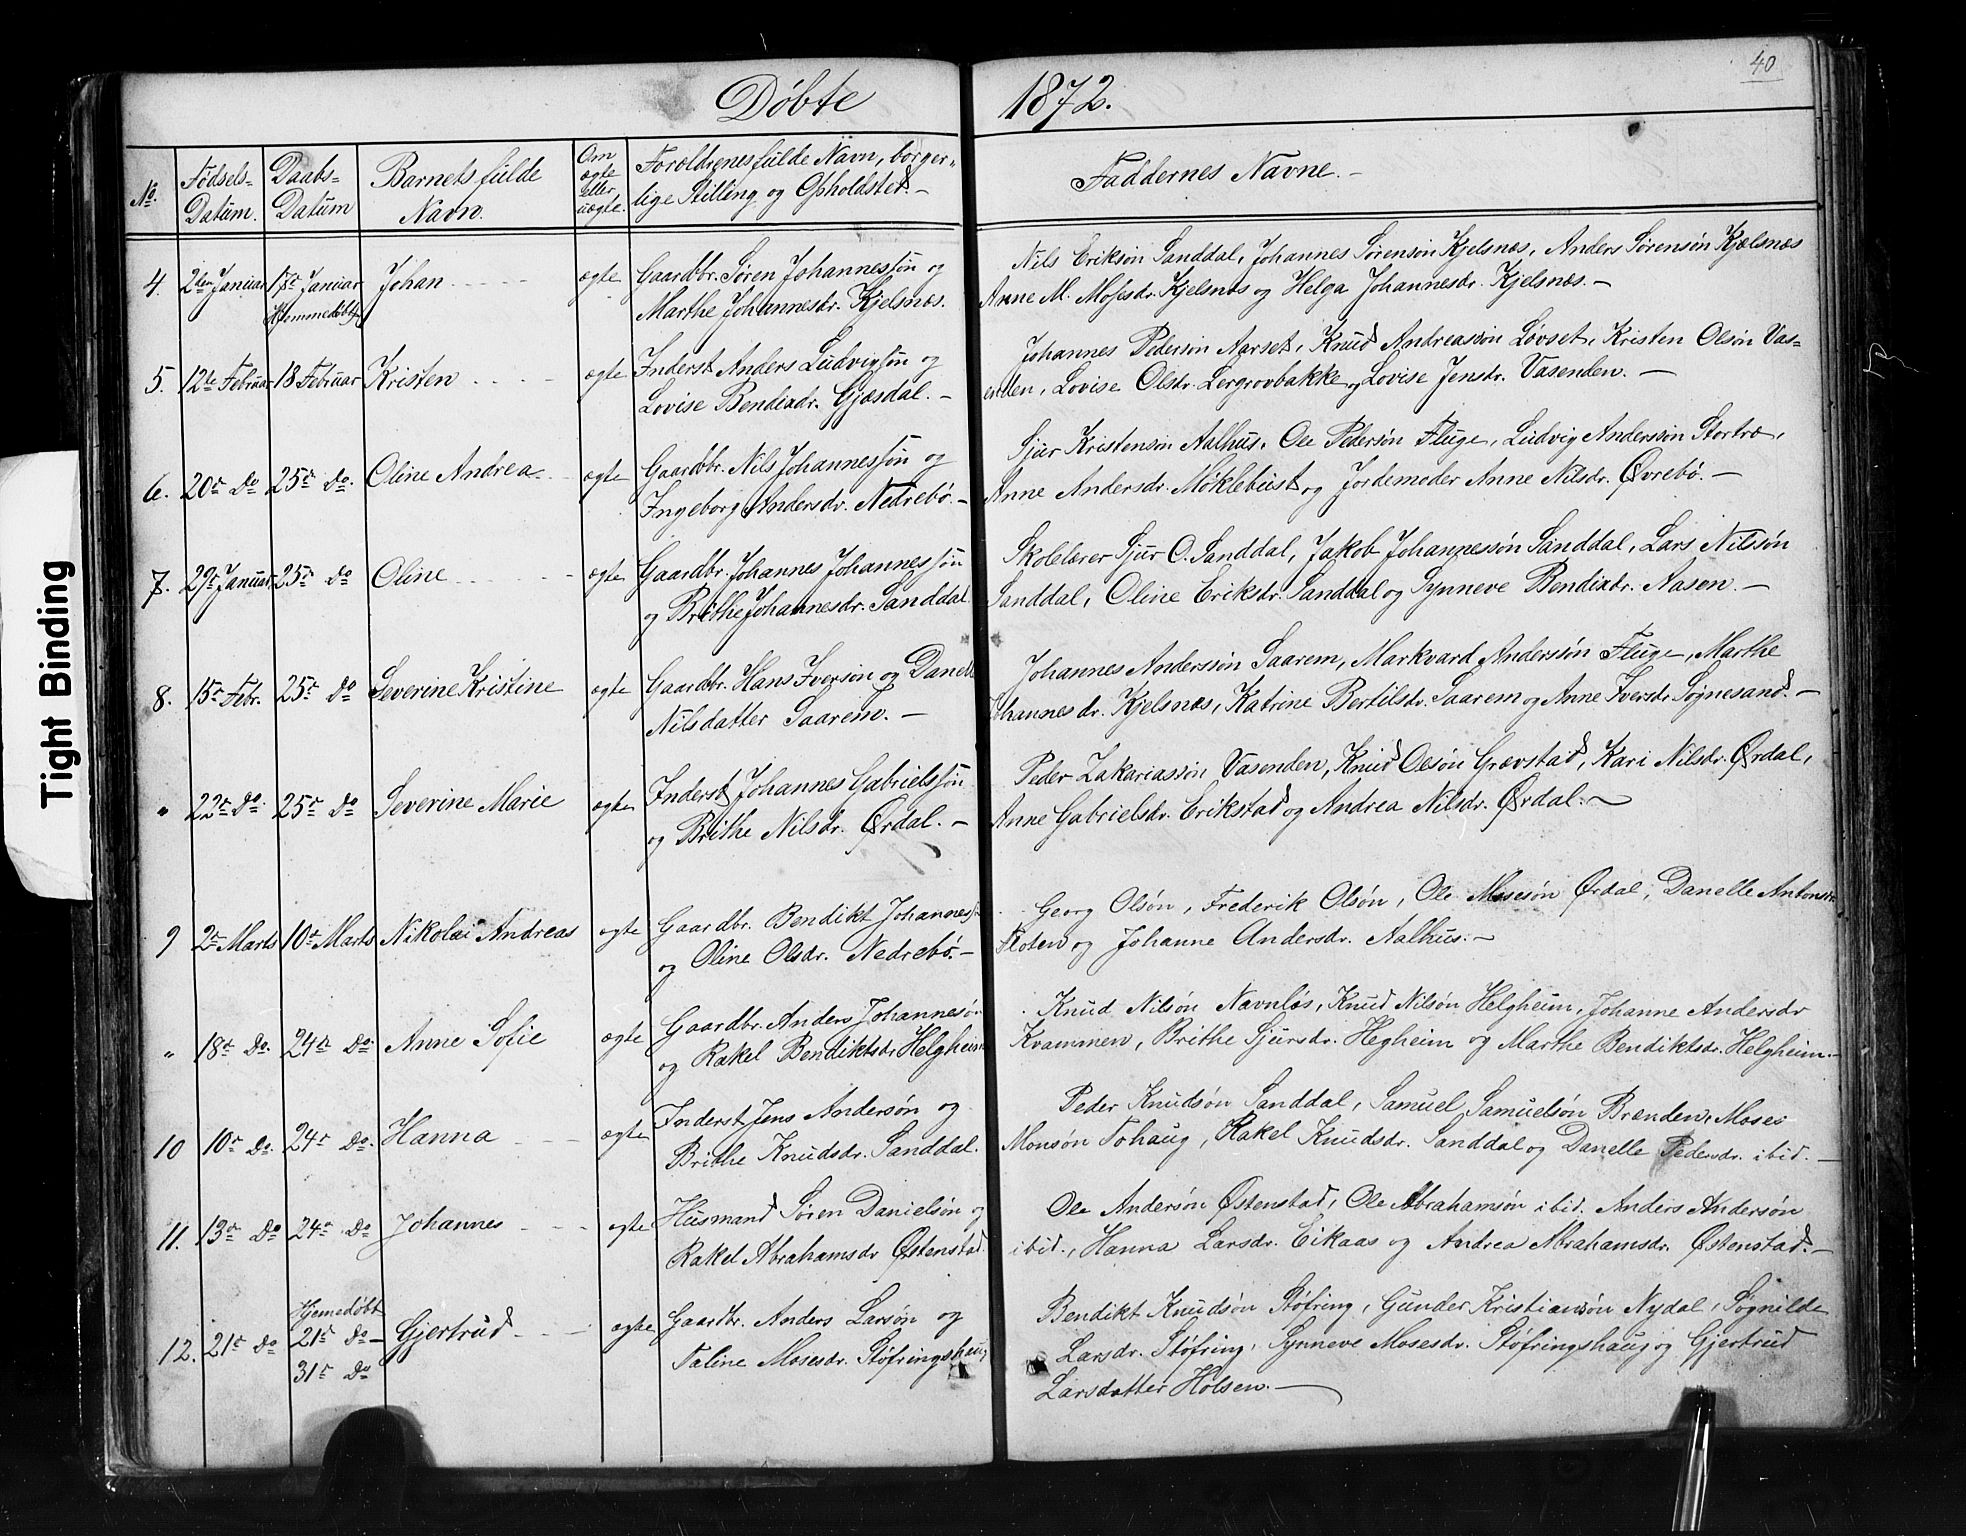 40
Døbte 1872.
No. Fødsels-Datum. Daabs-Datum Barnets fulde Navn. Om ægte eller uægte. Forældrenes fulde Navn, borger-lige Stilling og Opholdsted.- Faddernes Navne.-
4. 2den Januar 17r Januar Hjemmedøbt Johan ægte Gaardbr. Søren Johannessøn og
Marthe Johannesdr. Kjelsnæs.
Nils Eriksøn Sanddal, Johannes Sørensøn Kjelsnæs, Anders Sørensøn Kjælsnæs
Anne M. Mosesdr. Kjelsnæs og Helga Johannesdr. Kjelsnæs.-
5. 12te Februar 18 Februar Kristen ægte Inderst Anders Ludvigsøn og
Lovise Bendixdr. Gjæsdal.-
Johannes Pedersøn Aarset, Knud Andreassøn Løvset, Kristen Olsøn Vas-
enden, Lovise Olsdr. Lergrovbakke og Lovise Jensdr. Vasenden.-
6. 20r Do 25r Do. Oline Andrea ægte Gaardbr. Nils Johannessøn og
Ingeborg Andersdr. Nedrebø.-
Sjur Kristensøn Aalhus, Ole Pedersøn Fluge, Ludvig Anderssøn Stortræ,
Anne Andersdr. Møklebust og Jordemoder Anne Nilsdr. Øvrebø.-
7. 29r Januar 25r Do Oline ægte Gaardbr. Johannes Johannessøn
og Brithe Johannesdr. Sanddal
Skolelærer Sjur O. Sanddal, Jakob Johannessøn Sanddal, Lars Nilssøn
Sanddal, Oline Eriksdr. Sanddal og Synneve Bendixdr. Aasen.-
8. 15r Febr. 25r Do Severine Kristine ægte Gaardbr. Hans Iversøn og Danel
Nilsdatter Saarem.-
Johannes Anderssøn Saarem, Markvard Anderssøn Fluge, Marthe
Johannesdr. Kjelsnæs, Katrine Bertilsdr. Saarem og Anne Iversdr. Søgnesand.-
" 22r Do. 25r Do Severine Marie ægte Inderst Johannes Gabrielssøn
og Brithe Nilsdr. Ørdal.-
Peder Zakariassøn Vasenden, Knud Olsøn Grævstad, Kari Nilsdr. Ørdal,
Anne Gabrielsdr. Erikstad og Andrea Nilsdr. Ørdal.-
9 2r Marts 10r Marts Nikolai Andreas ægte Gaardbr. Bendikt Johanness
og Oline Olsdr. Nedrebø.-
Georg Olsøn, Frederik Olsøn, Ole Mosesøn Ørdal, Danelle Antons
Floten og Johanne Andersdr. Aalhus.-
" 18r Do. 24r Do Anne Sofie ægte Gaardbr. Anders Johannesøn
og Rakel Bendiktsdr. Helgheim
Knud Nilsøn Navnløs, Knud Nilsøn Helgheim, Johanne Andersdr
Kvammen, Brithe Sjursdr. Hegheim og Marthe Bendiktsdr. Helgheim.-
10 10r Do. 24r Do. Hanna ægte Inderst Jens Andersøn og
Brithe Knudsdr. Sanddal.
Peder Knudsøn Sanddal, Samuel Samuelsøn Brænden, Moses
Monsøn Tohaug, Rakel Knudsdr. Sanddal og Danelle Pedersdr. ibid.-
11. 13r Do 24r Do Johannes ægte Husmand Søren Danielsøn og
Rakel Abrahamsdr Østenstad
Ole Andersøn Østenstad, Ole Abrahamsøn ibid. Anders Andersøn
ibid., Hanna Larsdr. Eikaas og Andrea Abrahamsdr. Østenstad.-
12. 21r Do Hjemedøbt 21r Do- 31r Do Gjertrud ægte Gaardbr. Anders Larsøn og
Taline Mosesdr. Støfringshaug
Bendikt Knudsøn Støfring, Gunder Kristiansøn Nydal, Søgnilde
Larsdr. Støfring, Synneve Mosesdr. Støfringshaug og Gjertrud
Larsdatter Holsen.-
Tight Binding